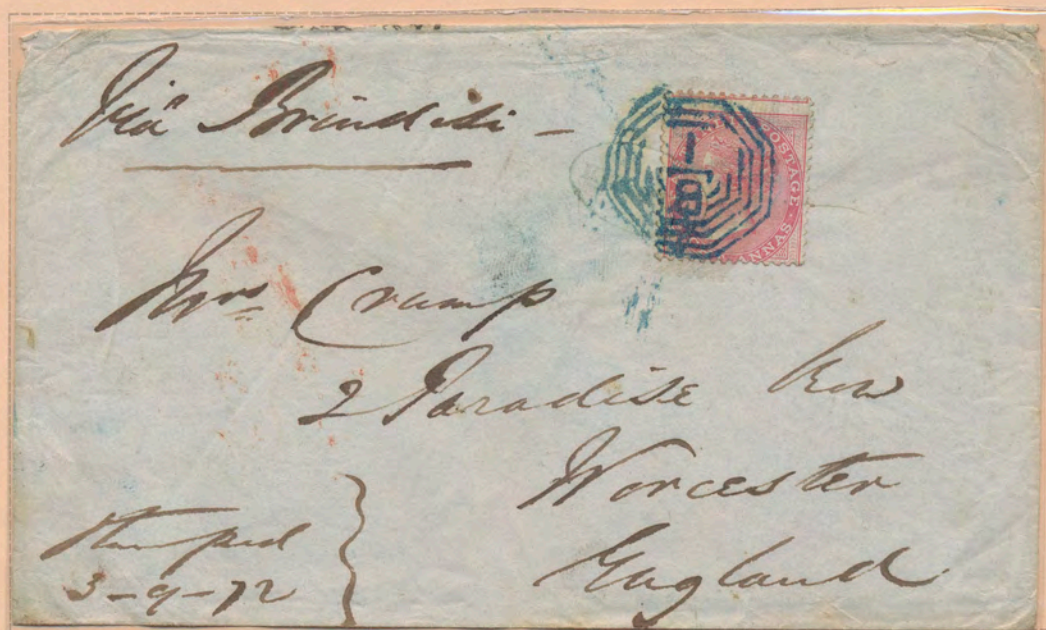 Viâ Brindisi -
POSTAGE
ANNAS
Mrs Cramp
2 Paradise Row
Worcester
England
Stamped
3-9-72